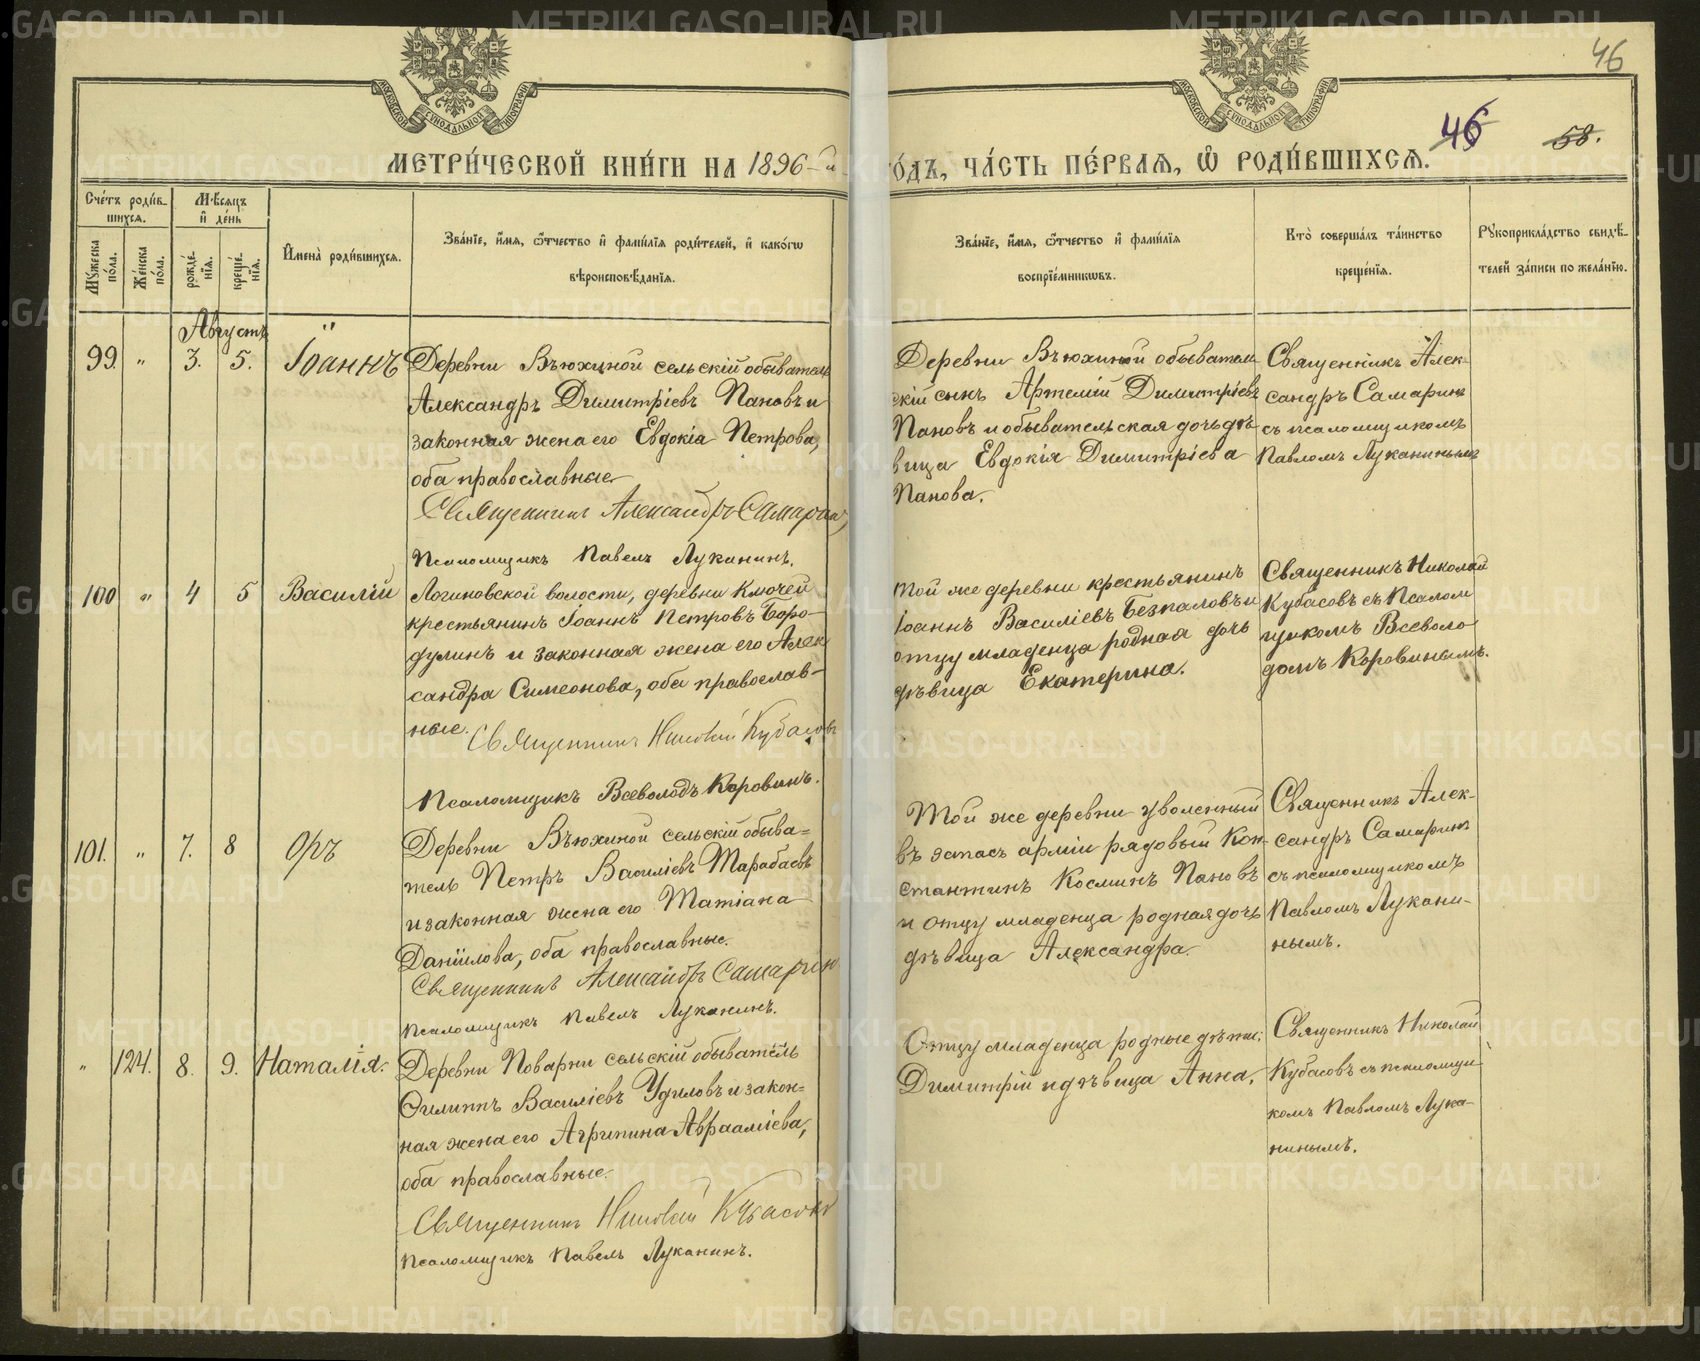 46
46
58.
МОСКОВСКОЙ СѴНОДАЛЬНОЙ ТИПОГРАФІИ
МОСКОВСКОЙ СѴНОДАЛЬНОЙ ТИПОГРАФІИ
МЕТРИ́ЧЕСКОЙ КНИ́ГИ НА 1896-й
ГО́ДЪ, ЧА́СТЬ ПЕ́РВАЯ, Ѽ РОДИ́ВШИХСЯ.
Сче́тъ роди́в-
шихся.
Мѣсяцъ
и҆ де́нь
Мꙋ́жеска
по́ла.
Же́нска
по́ла.
рожде́-
нїѧ.
креще́-
нїѧ.
И҆мена̀ роди́вшихсѧ.
Зва́нїе, и҆́мѧ, ѻ҆́тчество и҆ фами́лїѧ роди́телей, и҆ како́гѡ
вѣроисповѣ́данїѧ.
Зва́нїе, и҆́мѧ, ѻ҆́тчество и҆ фами́лїѧ
воспрїе́мникѡвъ.
Кто̀ соверша́лъ та́инство
креще́нїѧ.
Рꙋкоприкла́дство свидѣ́-
телей за́писи по жела́нїю.
Августъ
99. " 3. 5. Іоаннъ
Деревни Вьюхиной сельскій обыватель
Александръ Димитріевъ Пановъ и
законная жена его Евдокіа Петрова,
оба православные.
Священникъ Александръ Самаринъ
Псаломщикъ Павелъ Луканинъ.
Деревни Вьюхиной обыватель
скій сынъ Артемій Димитріевъ
Пановъ и обывательская дочь дѣ
вица Евдокія Димитріева
Панова.
Священникъ Алек-
сандръ Самаринъ
съ псаломщикомъ
Павломъ Луканинымъ
100 " 4 5 Василій
Логиновской волости, деревни Ключей
крестьянинъ Іоаннъ Петровъ Боро-
дулинъ и законная жена его Алек
сандра Симеонова, оба православ-
ные.
Священникъ Николай Кубасовъ
Псаломщикъ Всеволодъ Коровинъ.
Той же деревни крестьянинъ
Іоаннъ Василіевъ Безпаловъ и
отцу младенца родная дочь
дѣвица Екатерина.
Священникъ Николай
Кубасовъ съ Псалом
щикомъ Всеволо
домъ Коровинымъ.
101. " 7. 8 Оръ
Деревни Вьюхиной сельскій обыва-
тель Петръ Василіевъ Тарабаевъ
и законная жена его Татіана
Даніилова, оба православные.
Священникъ Александръ Самаринъ
Псаломщикъ Павелъ Луканинъ.
Той же деревни уволенный
въ запасъ арміи рядовый Кон-
стантинъ Косминъ Пановъ
и отцу младенца родная дочь
дѣвица Александра.
Священникъ Алек-
сандръ Самаринъ
съ псаломщикомъ
Павломъ Лукани-
нымъ.
" 124. 8. 9. Наталія.
Деревни Поварни сельскій обыватель
Филиппъ Василіевъ Удиловъ и закон-
ная жена его Агрипина Авраамліева,
оба православные.
Священникъ Николай Кубасовъ
Псаломщикъ Павелъ Луканинъ.
Отцу младенца родные дѣти:
Димитрій и дѣвица Анна.
Священникъ Николай
Кубасовъ съ псаломщи-
комъ Павломъ Лука-
нинымъ.
METRIKI.GASO-URAL.RU